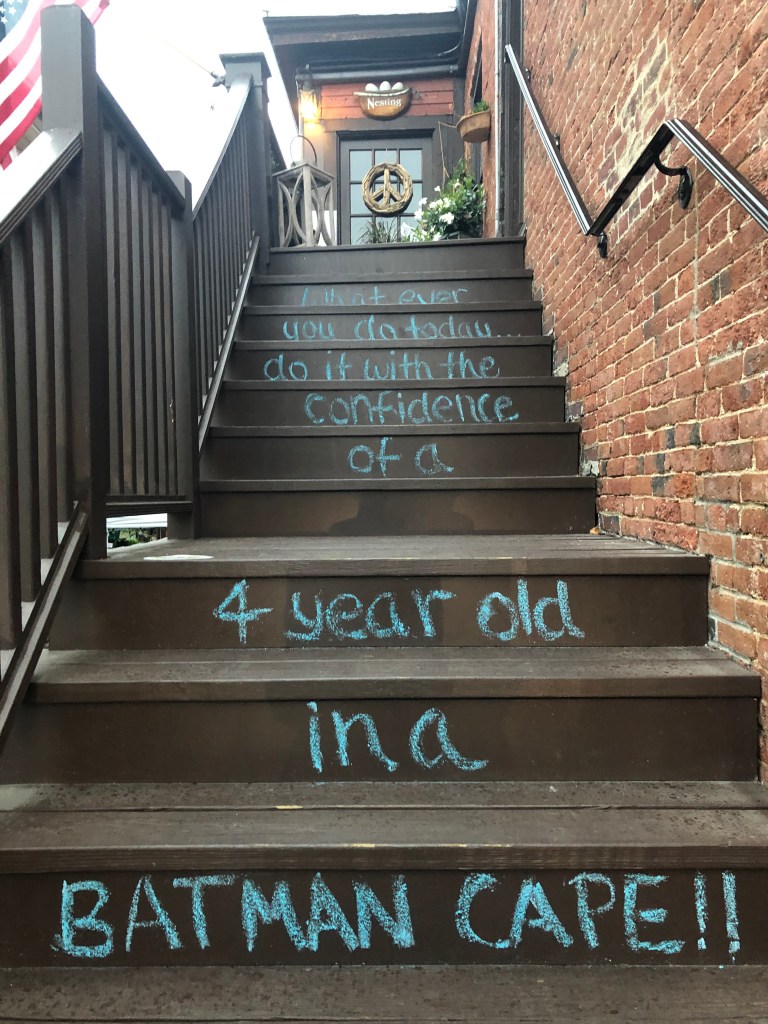 Nesting
What ever
you do today...
do it with the
confidence
of a
4 year old
in a
BATMAN CAPE!!